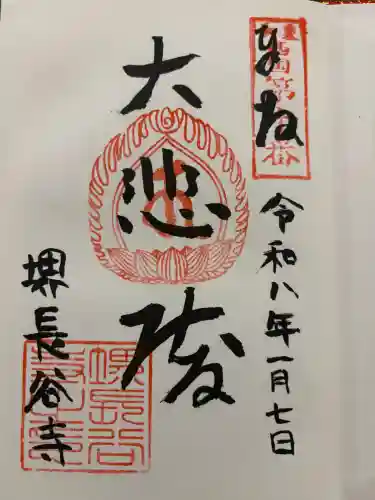 奉拝
令和八年一月七日
大悲殿
堺長谷寺